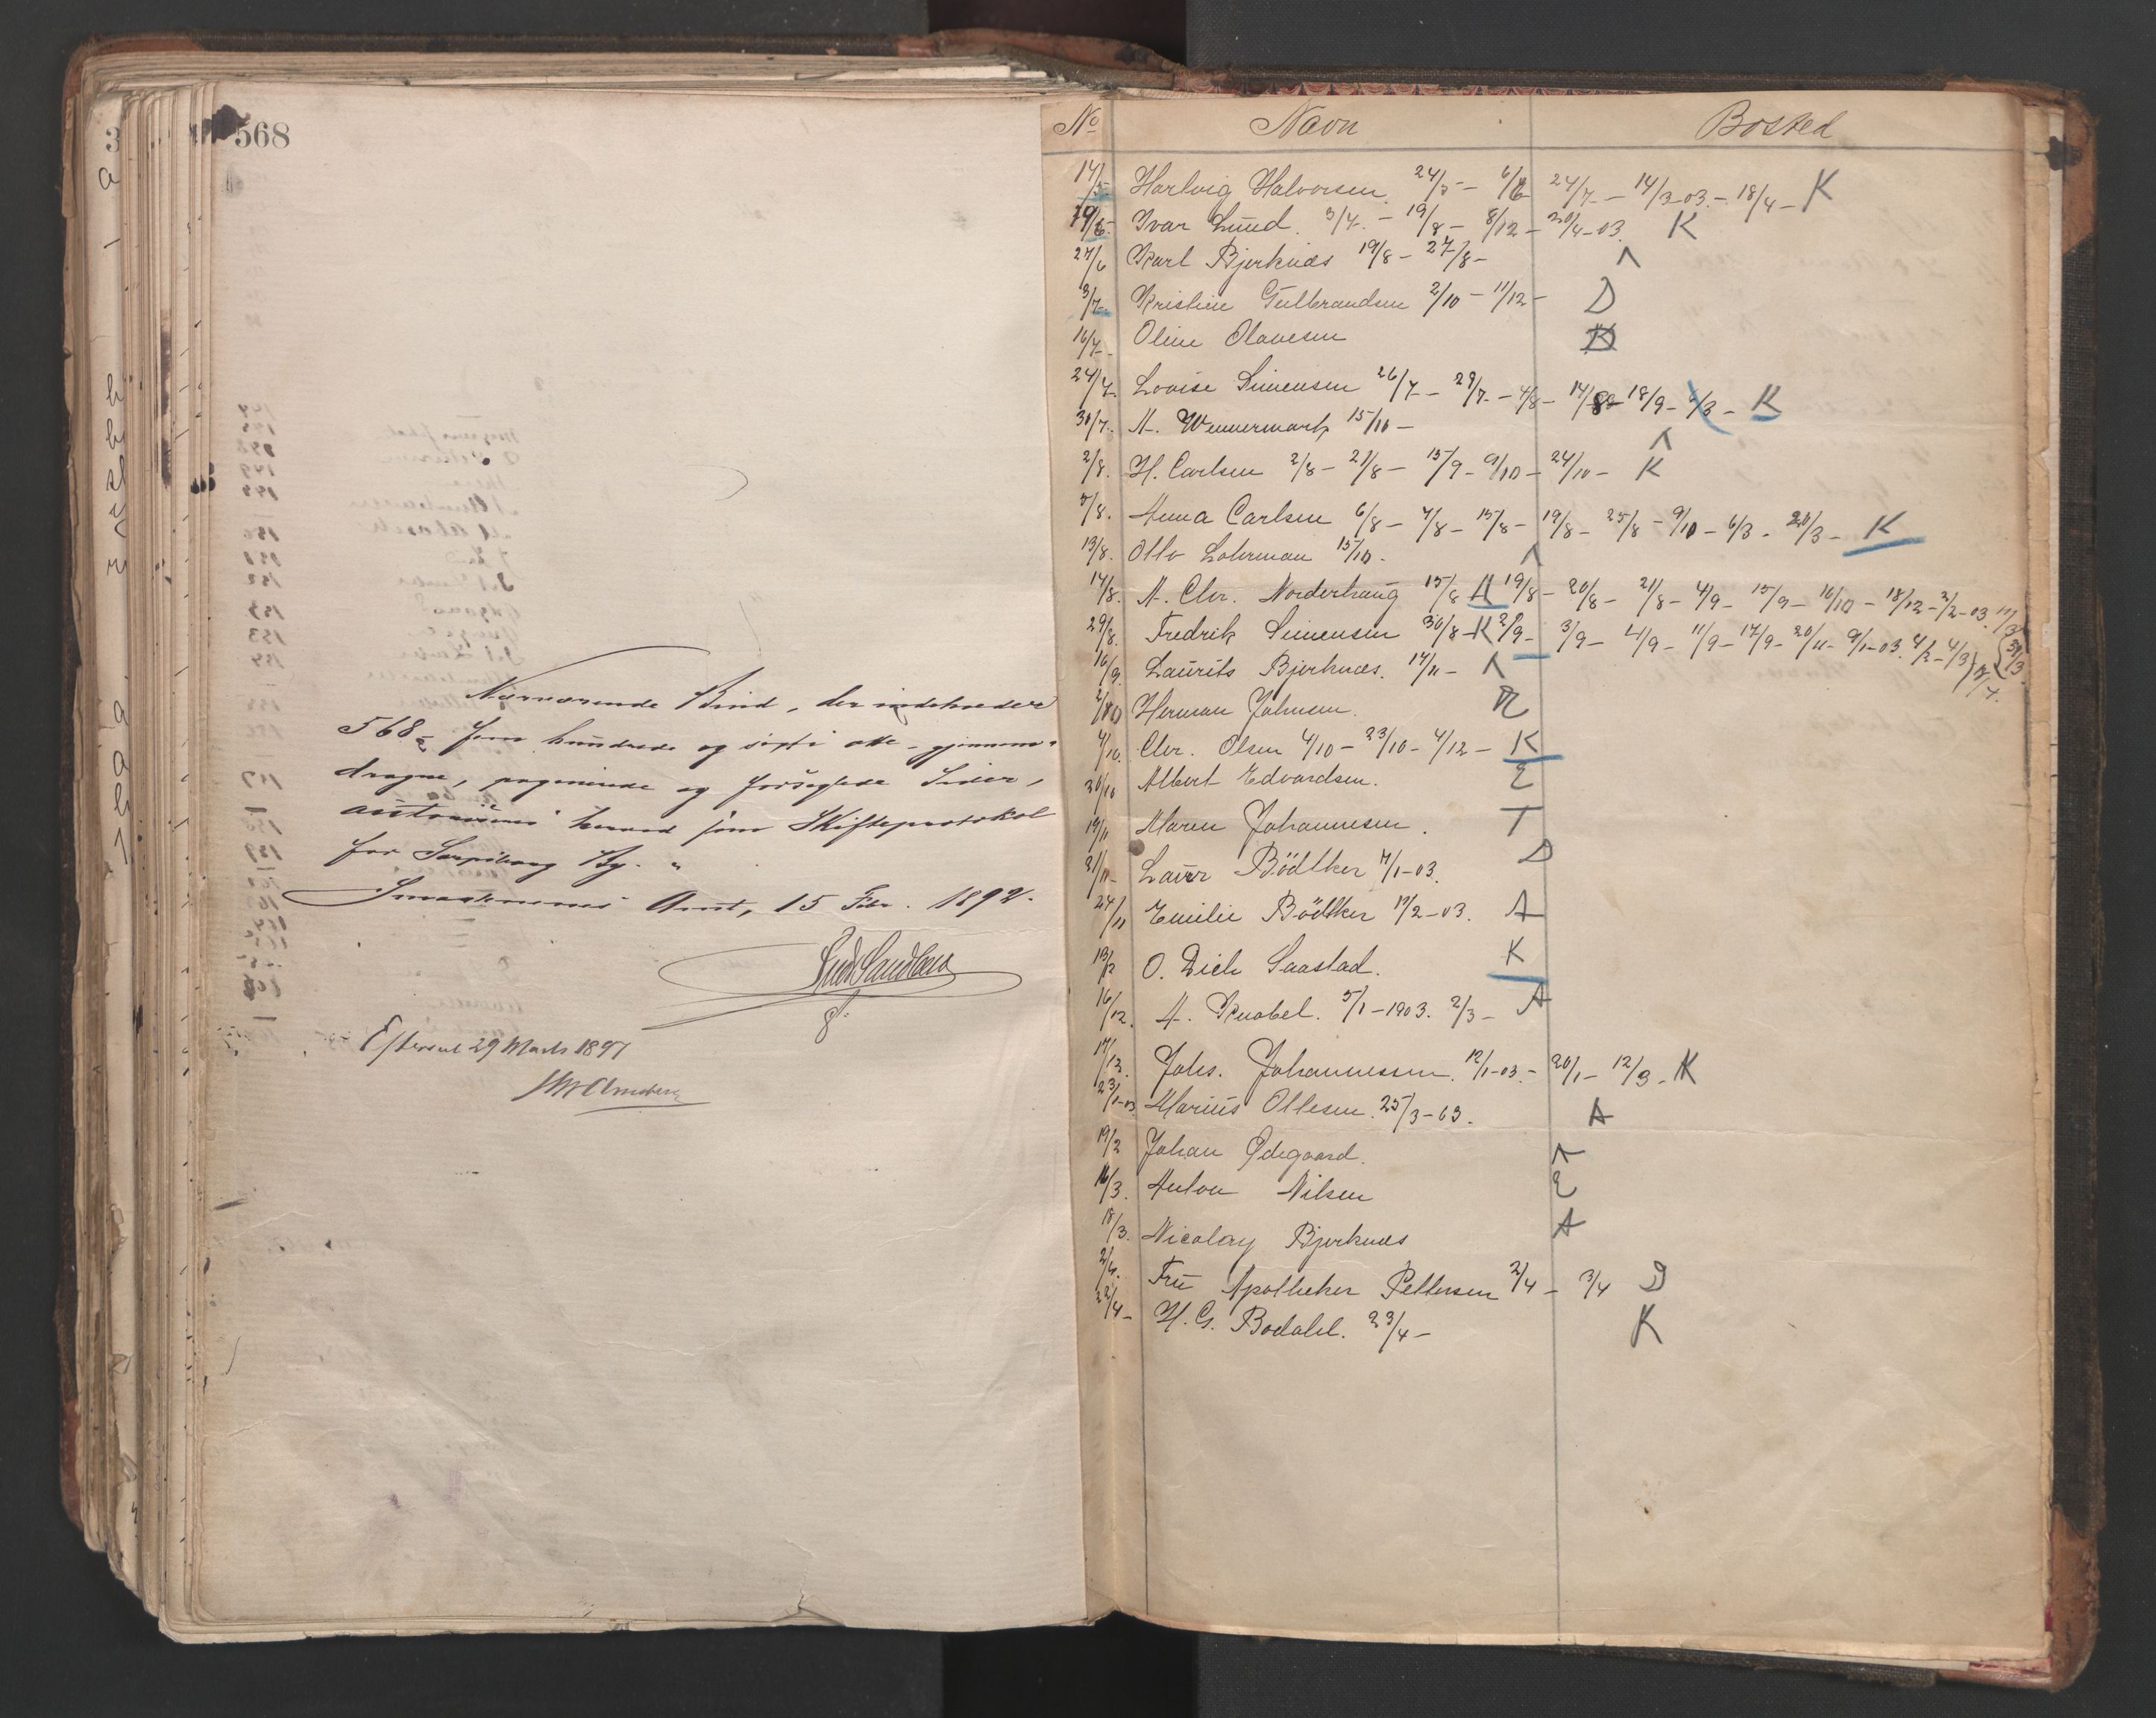 568
Nærværende Bind, der indeholder
568 = fem hundrede og sexti otte - gjennem-
dragne, paginerede og forseglede Sider,
autoriseres herved som Skifteprotokol
for Sarpsborg By.
Smaalenenes Amt, 15 Febr. 1892.
Efterseet 29 Marts 1897
No Navn Bosted
14/5 Hartvig Halvorsen 24/5 - 6/6 24/7 - 14/3-03. - 18/4 - K
19/6 Ivar Lund. 3/7. - 19/8 - 8/12 - 20/4-03. K
27/6 Karl Bjerknæs 19/8 - 27/8 - A
3/7. Kristine Gulbrandsen 2/10 - 11/12 - D
16/7 Oline Olavesen
24/7 Lovise Simensen 26/7 - 29/7 - 4/8 - 14/8 - 18/9 - 6/3 - K
30/7. A. Wennermark 15/10 - A
2/8. H. Carlsen 2/8 - 21/8 - 15/9 - 9/10 - 24/10 - K
5/8. Anna Carlsen 6/8 - 7/8 - 15/8 - 19/8 - 25/8 - 9/10 - 6/3 - 20/3 - K
13/8. Otto Lohrman 15/10. A
14/8. A. Chr. Nordenhaug 15/8 A 19/8 - 20/8 - 21/8 - 4/9 - 15/9 - 16/10 - 18/12 - 2/2-03. 17/3
29/8. Fredrik Simensen 30/8 - K 2/9 - 3/9 - 4/9 - 11/9 - 17/9 - 20/11 - 9/1-03. 4/2 - 4/3
16/9. Laurits Bjerknæs. 14/11 - A
2/10 Herman Johnsen.
4/10. Chr. Olsen 4/10 - 23/10 - 4/12 - K
30/10 Albert Edvardsen. E
19/11 Maren Johannesen. T
21/11 - Laura Bödtker 7/1-03. D
24/11 Emilie Bödtker 17/2-03. A
O. Dich Saastad. K
16/12. A. Knobel. 5/1-1903. 2/3 - A
17/12. Johs. Johannessen. 12/1-03. - 20/1 - 12/3 - K
23/1-03 Marius Ottesen. 25/3-03. A
19/2 Johan Ødegaard. A
16/3. Anton Nilsen E
18/3. Nicolay Bjerknæs A
2/4. Fru Apotheker Pettersen 2/4 - 3/4 D
22/4 - H. G. Bodahl. 23/4 - K